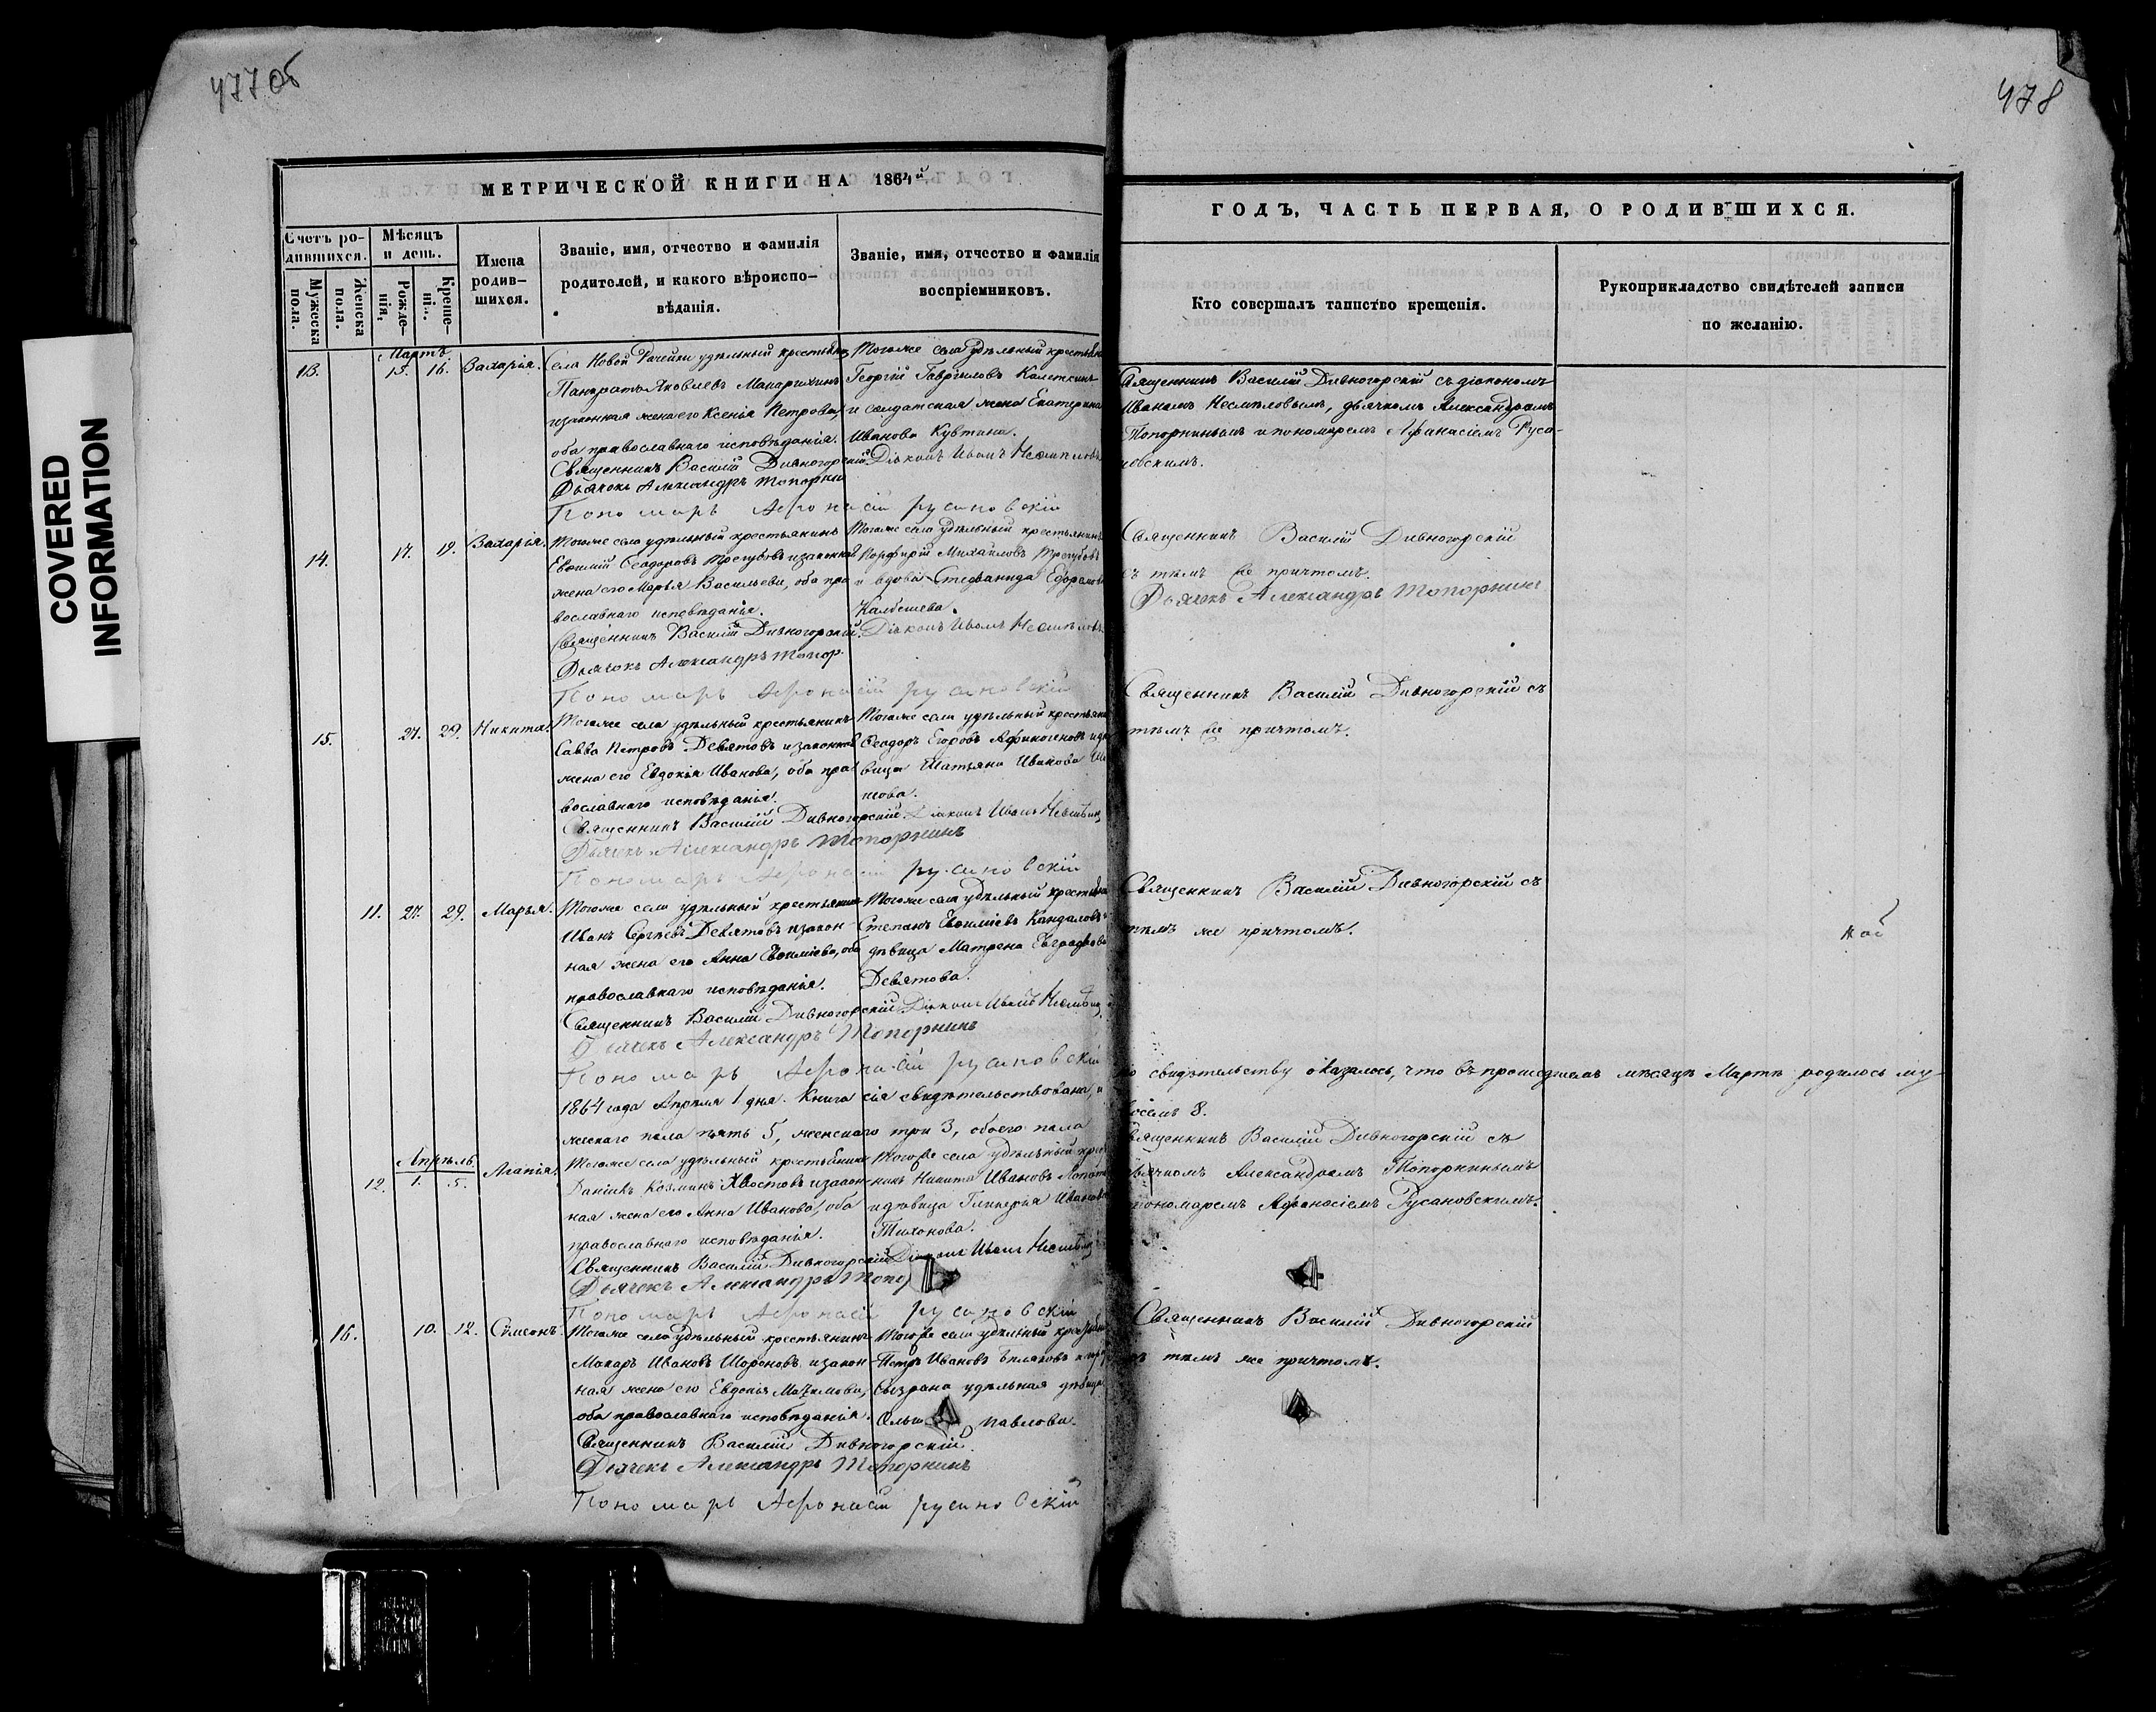 477 об
478
COVERED
INFORMATION
МЕТРИЧЕСКОЙ КНИГИ НА 1864й
ГОДЪ, ЧАСТЬ ПЕРВАЯ, О РОДИВШИХСЯ.
Счетъ ро-
дившихся.
Мужеска
пола.
Женска
пола.
Мѣсяцъ
и день.
Рожде-
нія.
Креще-
нія.
Имена
родив-
шихся.
Званіе, имя, отчество и фамилія
родителей, и какого вѣроиспо-
вѣданія.
Званіе, имя, отчество и фамилія
воспріемниковъ.
Кто совершалъ таинство крещенія.
Рукоприкладство свидѣтелей записи
по желанію.
Мартъ
13. 15. 16. Захарія.
Села Новой Рачейки удѣльный крестьянинъ
Панкратъ Яковлевъ
изаконная жена его Ксенія Петрова,
оба православнаго исповѣданія.
Тогоже села удѣльный
Георгій Гавриловъ Калеткинъ
и солдатская жена Екатерина
Иванова
Священникъ Василій Дивногорскій Діяконъ Иванъ Несмѣловъ
Дьячекъ Александръ
Пономарь Афонасій русановскій
Священникъ Василій Дивногорскій съ діакономъ
Иваномъ Несмѣловымъ, дьячкомъ Александромъ
Топорнинымъ и пономаремъ Афанасіемъ Руса-
новскимъ.
14. 17. 19. Захарія.
Тогоже села удѣльный крестьянинъ
Евфимій Ѳеодоровъ Трегубовъ изаконная
жена его Марья Васильева, оба пра-
вославнаго исповѣданія.
Тогоже села удѣльный крестьянинъ
Порфирій Михайловъ Трегубовъ
и вдова Стефанида
Священникъ Василій Дивногорскій. Діяконъ Иванъ Несмѣловъ
Дьячокъ Александръ Топор
Пономарь Афонасій русановскій
Священникъ Василій Дивногорскій
съ тѣмъ же причтомъ.
Дьячекъ Александръ Топорнинъ
15. 27. 29. Никита.
Тогоже села удѣльный крестьянинъ
Савва Петровъ Девятовъ изаконная
жена его Евдокія Иванова, оба пра-
вославнаго исповѣданія.
Тогоже села удѣльный
Ѳеодоръ Егоровъ Афиногеновъ
вица Татьяна Иванова
Священникъ Василій Дивногорскій Діяконъ Иванъ
Дьячекъ Александръ Топорнинъ
Пономарь Афонасій русановскій
Священникъ Василій Дивногорскій съ
тѣмъ же причтомъ.
11. 27. 29. Марья.
Тогоже села удѣльный крестьянинъ
Иванъ Сергѣевъ Девятовъ изакон-
ная жена его Анна Евфиміева, оба
православнаго исповѣданія.
Тогоже села удѣльный
Степанъ Евфиміевъ Кандаловъ
дѣвица Матрена Евграфова
Девятова.
Священникъ Василій Дивногорскій Діяконъ Иванъ
Дьячекъ Александръ Топорнинъ
Пономарь Афонасій русановскій
Священникъ Василій Дивногорскій съ
тѣмъ же причтомъ.
1864 года Апрѣля 1 дня. Книга сія свидѣтельствована, и
по свидѣтельству оказалось, что въ прошедшемъ мѣсяцѣ Мартѣ родилось му-
жескаго пола пять 5, женскаго три 3, обоего пола
восемь 8.
Апрѣль.
12. 1. 5. Агапія.
Тогоже села удѣльный крестьянинъ
Даніилъ Козминъ Хвостовъ изакон-
ная жена его Анна Иванова, оба
православнаго исповѣданія.
Тогоже села удѣльный
Никита Ивановъ
и дѣвица Гликерія Иванова
Тихонова.
Священникъ Василій Дивногорскій Діяконъ Иванъ
Дьячекъ Александръ
Пономарь Афонасій русановскій
Священникъ Василій Дивногорскій съ
дьячкомъ Александромъ Топорнинымъ
пономаремъ Афанасіемъ Русановскимъ.
16. 10. 12. Симеонъ
Тогоже села удѣльный крестьянинъ
Макаръ Ивановъ Шороновъ изакон-
ная жена его Евдокія Максимова,
оба православнаго исповѣданія.
Тогоже села удѣльный
Петръ Ивановъ Бѣляковъ
Сызрана удѣльная дѣвица
Павлова.
Священникъ Василій Дивногорскій
Дьячекъ Александръ Топорнинъ
Пономарь Афонасій русановскій
Священникъ Василій Дивногорскій
съ тѣмъ же причтомъ.